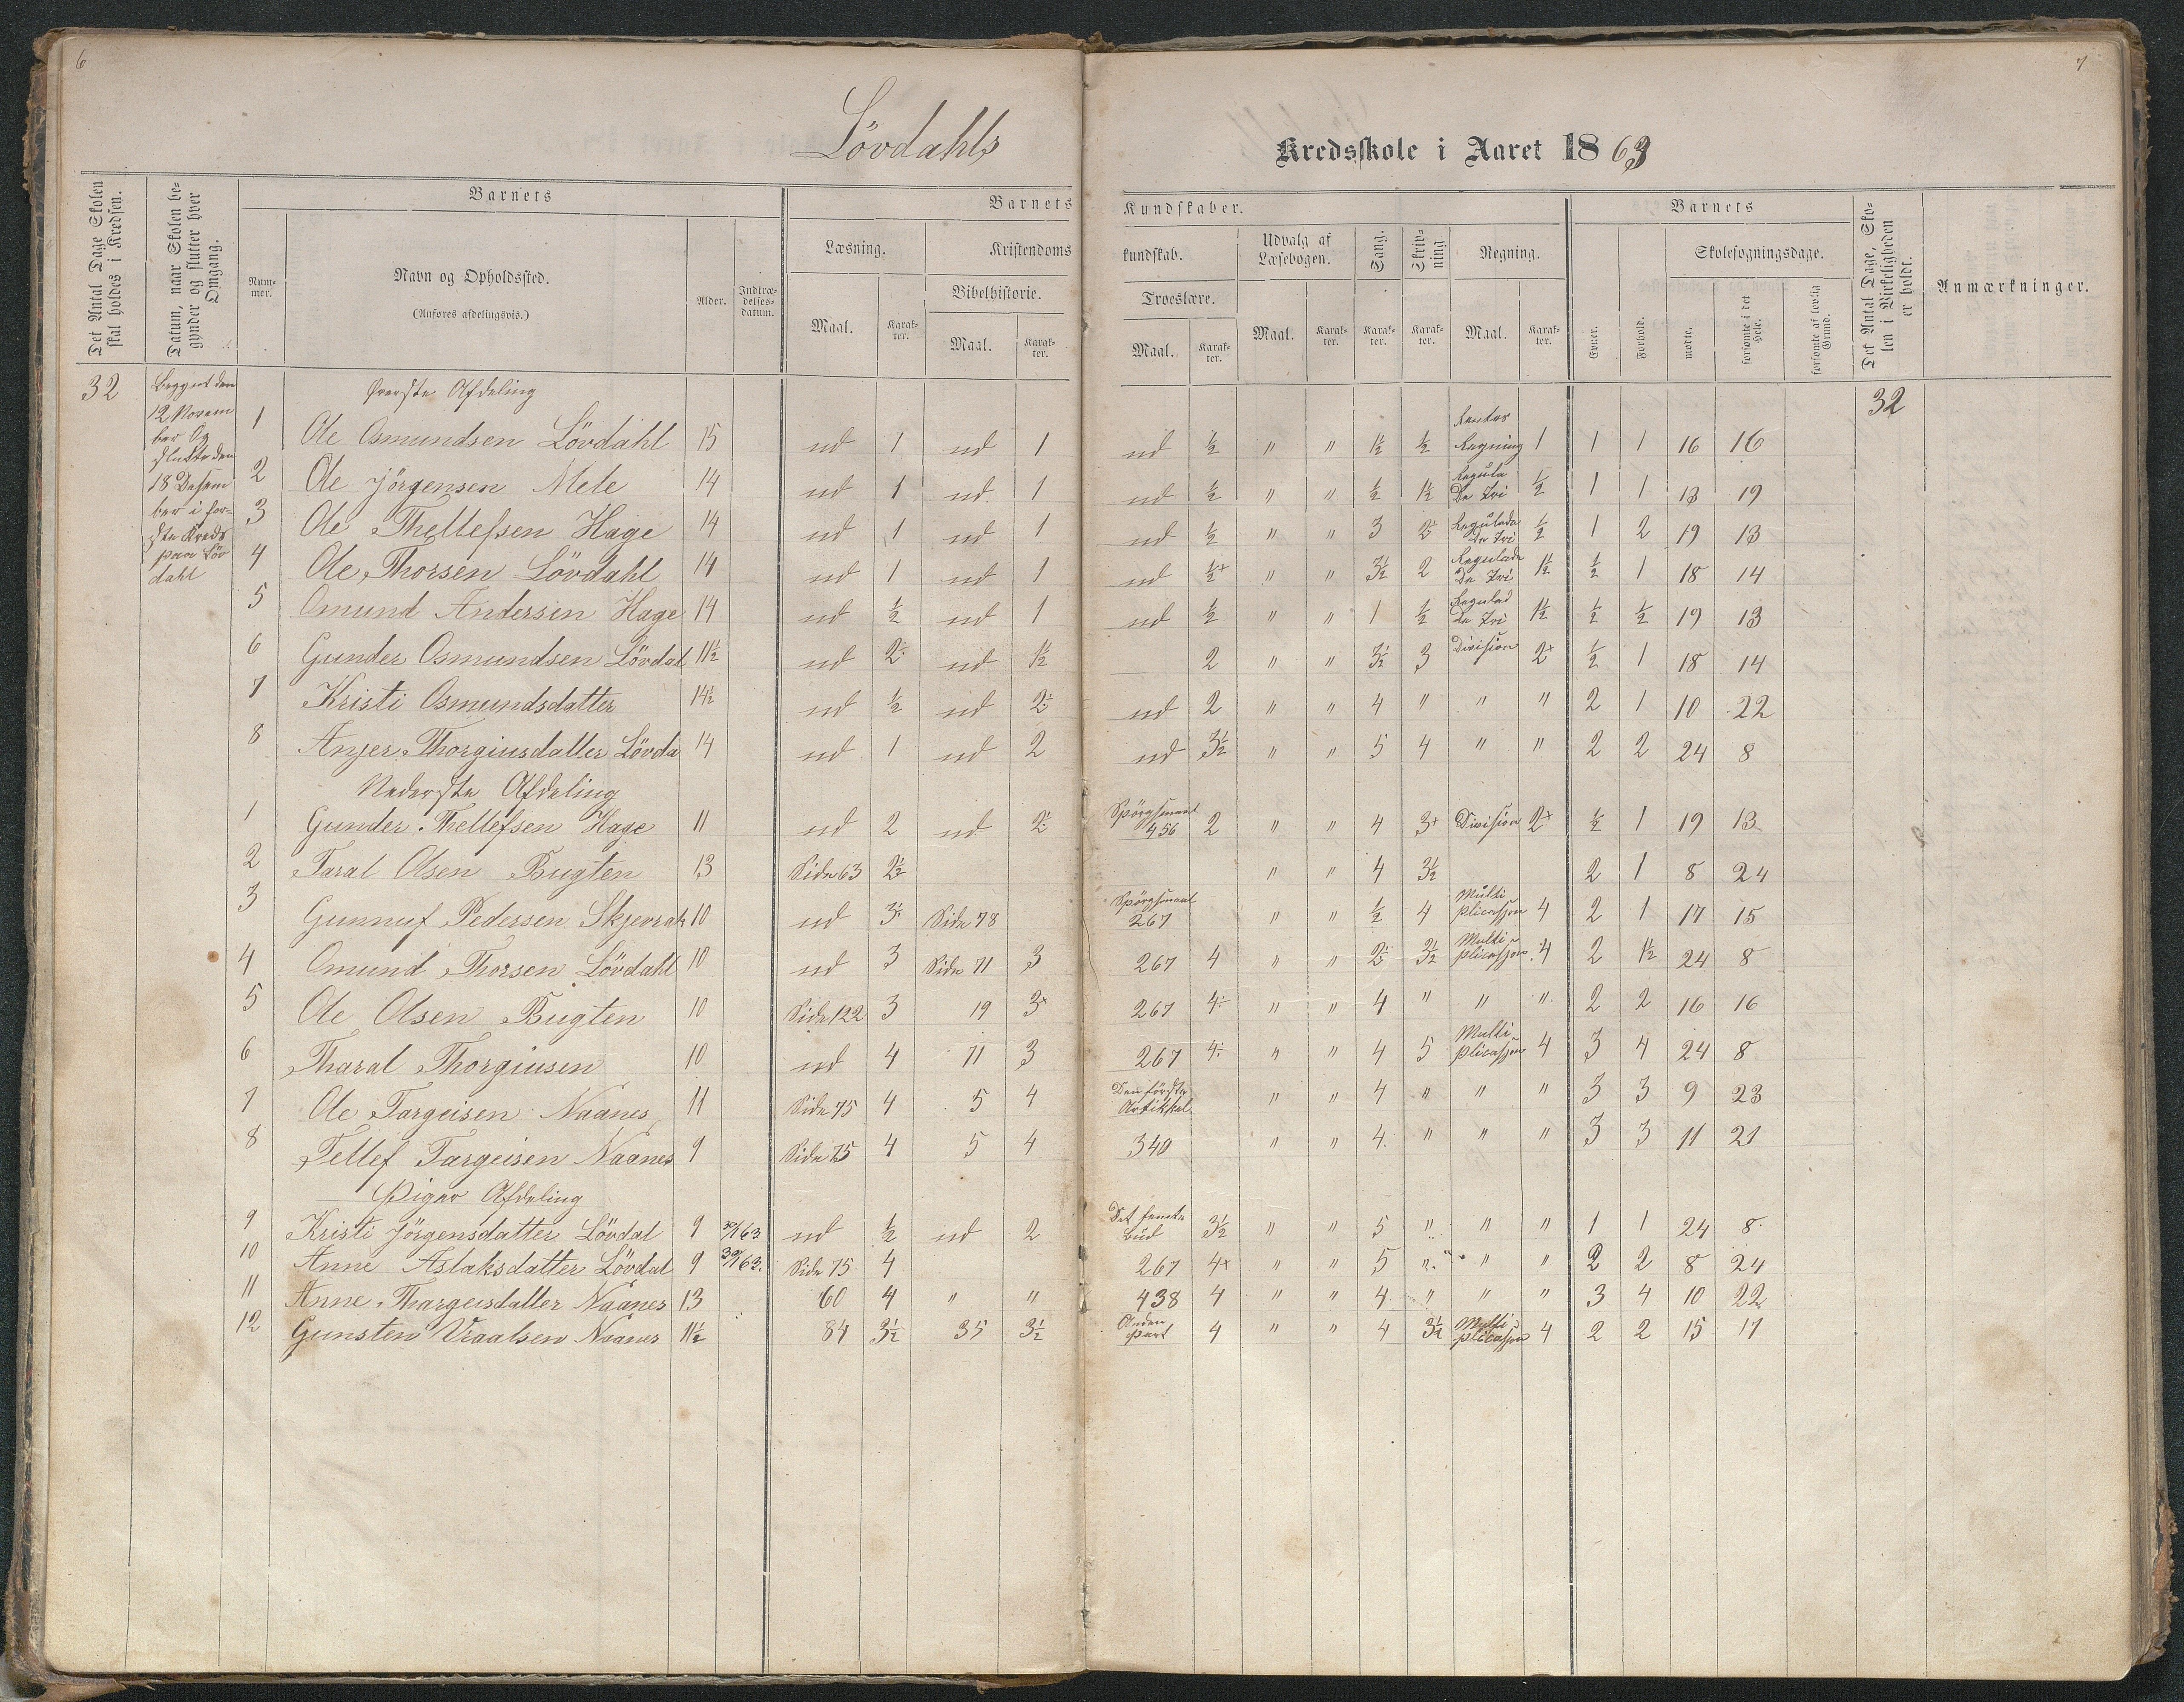 6
7
Lövdahls
Kredsskole i Aaret 1863
Det Antal Dage Skolen skal holdes i Kredsen.
Datum, naar Skolen begynder og slutter hver Omgang.
Barnets
Nummer.
Navn og Opholdssted.
(Anføres afdelingsvis.)
Alder.
Indtrædelsesdatum.
Barnets
Kundskaber.
Læsning.
Kristendoms
kundskab.
Udvalg af Læsebogen.
Sang.
Skrivning
Regning.
Bibelhistorie.
Troeslære.
Maal.
Karakter.
Maal.
Karakter.
Maal.
Karakter.
Maal.
Karakter.
Karakter.
Karakter.
Maal.
Karakter.
Barnets
Evner.
Forhold.
Skolesøgningsdage.
mødte.
forsømte i det Hele.
forsømte af lovlig Grund.
Det Antal Dage, Skolen i Virkeligheden er holdt.
Anmærkninger.
32
Begynt den
12 Novem
ber Og
Slutte den
18 Desem
ber i for-
ste Kreds
paa Löv
dahl
32
Øverste Afdeling
1 Ole Osmundsen Lövdahl 15 ud 1 ud 1 ud ½ " " 1½ ½ Rentes Regning 1 1 1 16 16
2 Ole Jörgensen Mele 14 ud 1 ud 1 ud ½ " " ½ 1½ Regula De Tri ½ 1 1 13 19
3 Ole Thellefsen Hage 14 ud 1 ud 1 ud ½ " " 3 2÷ Regulade De Tri ½ 1 2 19 13
4 Ole Thorsen Lövdahl 14 ud 1 ud 1 ud ½+ " " 3½ 2 Regulade De Tri 1½ ½ 1 18 14
5 Omund Andersen Hage 14 ud ½ ud 1 ud ½ " " 1 ½ Regulad de Tri 1½ ½ ½ 19 13
6 Gunder Osmundsen Lövdal 11½ ud 2÷ ud 1½ 2 " " 3½ 3 Division 2+ ½ 1 18 14
7 Kristi Osmundsdatter 14½ ud ½ ud 2÷ ud 2 " " 4 " " " 2 1 10 22
8 Anjer Thorgiusdatter Lövda 14 ud 1 ud 2 ud 3½ " " 5 4 " " 2 2 24 8
Nederste Afdeling
1 Gunder Thellefsen Hage 11 ud 2 ud 2÷ Spörgsmaal 456 2 " " 4 3+ Division 2+ ½ 1 19 13
2 Taral Olsen Bugten 13 Side 63 2½ " " 4 3½ 2 1 8 24
3 Gunnuf Pedersen Skjevrak 10 ud 3÷ Side 78 Spörgsmaal 267 " " ½ 4 Multi plicassjon 4 2 1 17 15
4 Omund Thorsen Lövdahl 10 ud 3 Side 71 3 267 4 " " 2÷ 3½ Multi plicassjon 4 2 1½ 24 8
5 Ole Olsen Bugten 10 Side 122 3 19 3+ 267 4÷ " " 4 " " " 2 2 16 16
6 Tharal Thorgiusen 10 ud 4 71 3 267 4÷ " " 4 5 Multi plicassjon 4 3 4 24 8
7 Ole Targeisen Naanes 11 Side 75 4 5 4 Den förste Artikkel " " 4 " " " 3 3 9 23
8 Tellef Targeisen Naanes 9 Side 75 4 5 4 340 " " 4 " " " 3 3 11 21
Piger Afdeling
9 Kristi Jörgensdatter Lövdal 9 63 ud ½ ud 2 Det femte Bud 3½ " " 5 " " " 1 1 24 8
10 Anne Aslaksdatter Lövdal 9 63. Side 75 4 267 4+ " " 5 " " " 2 2 8 24
11 Anne Thargeisdatter Naanes 13 60 4 " " 438 4 " " 4 " " " 3 4 10 22
12 Gunsten Vraalsen Naanes 11½ 84 3½ 35 3½ Anden Part 4 " " 4 3½ Multi plicassjon 4 2 2 15 17